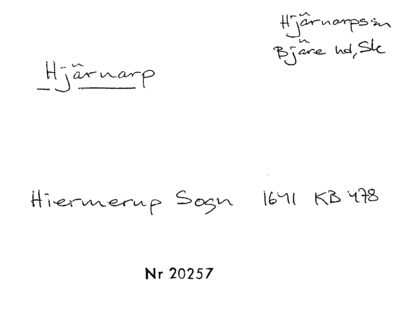 Hjärnarps sn
Bjäre hd, Sk
Hjärnarp
Hiermerup Sogn 1641 KB 478
Nr 20257